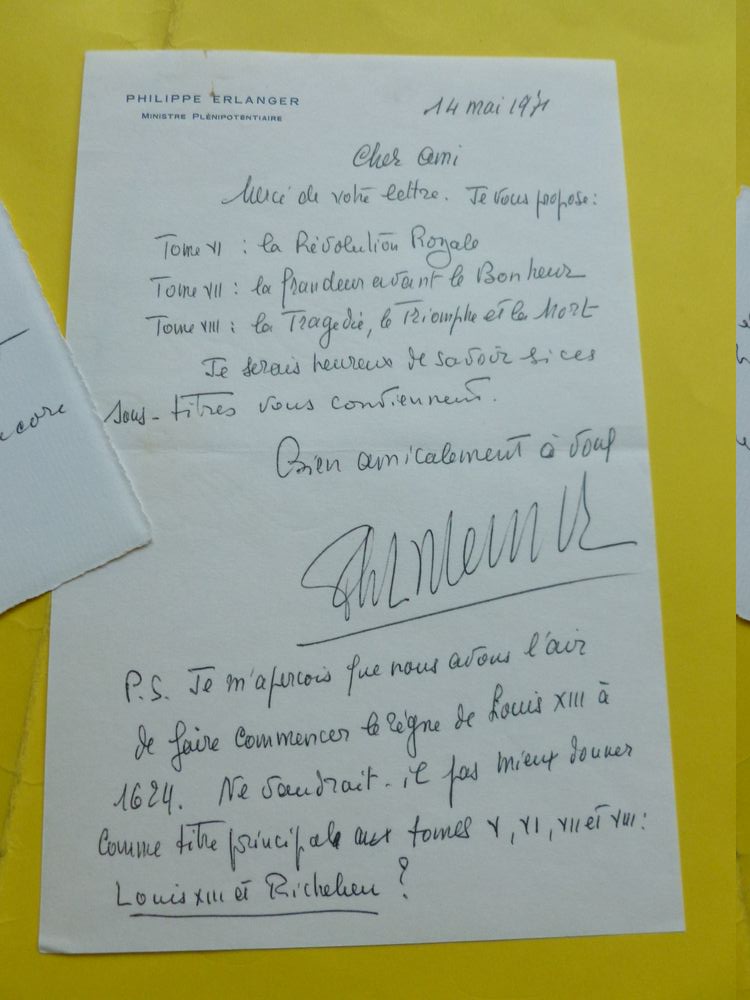 PHILIPPE ERLANGER
MINISTRE PLÉNIPOTENTIAIRE
14 mai 1971
Cher ami
Merci de votre lettre. Je vous propose :
Tome VI : la Révolution Royale
Tome VII : la Grandeur avant le Bonheur
Tome VIII : la Tragédie, le Triomphe et la Mort
Je serais heureux de savoir si ces
sous-titres vous conviennent.
Bien amicalement à vous
P.S. Je m'aperçois que nous avons l'air
de faire commencer le règne de Louis XIII à
1624. Ne vaudrait-il pas mieux donner
comme titre principal aux tomes V, VI, VII et VIII :
Louis XIII et Richelieu ?